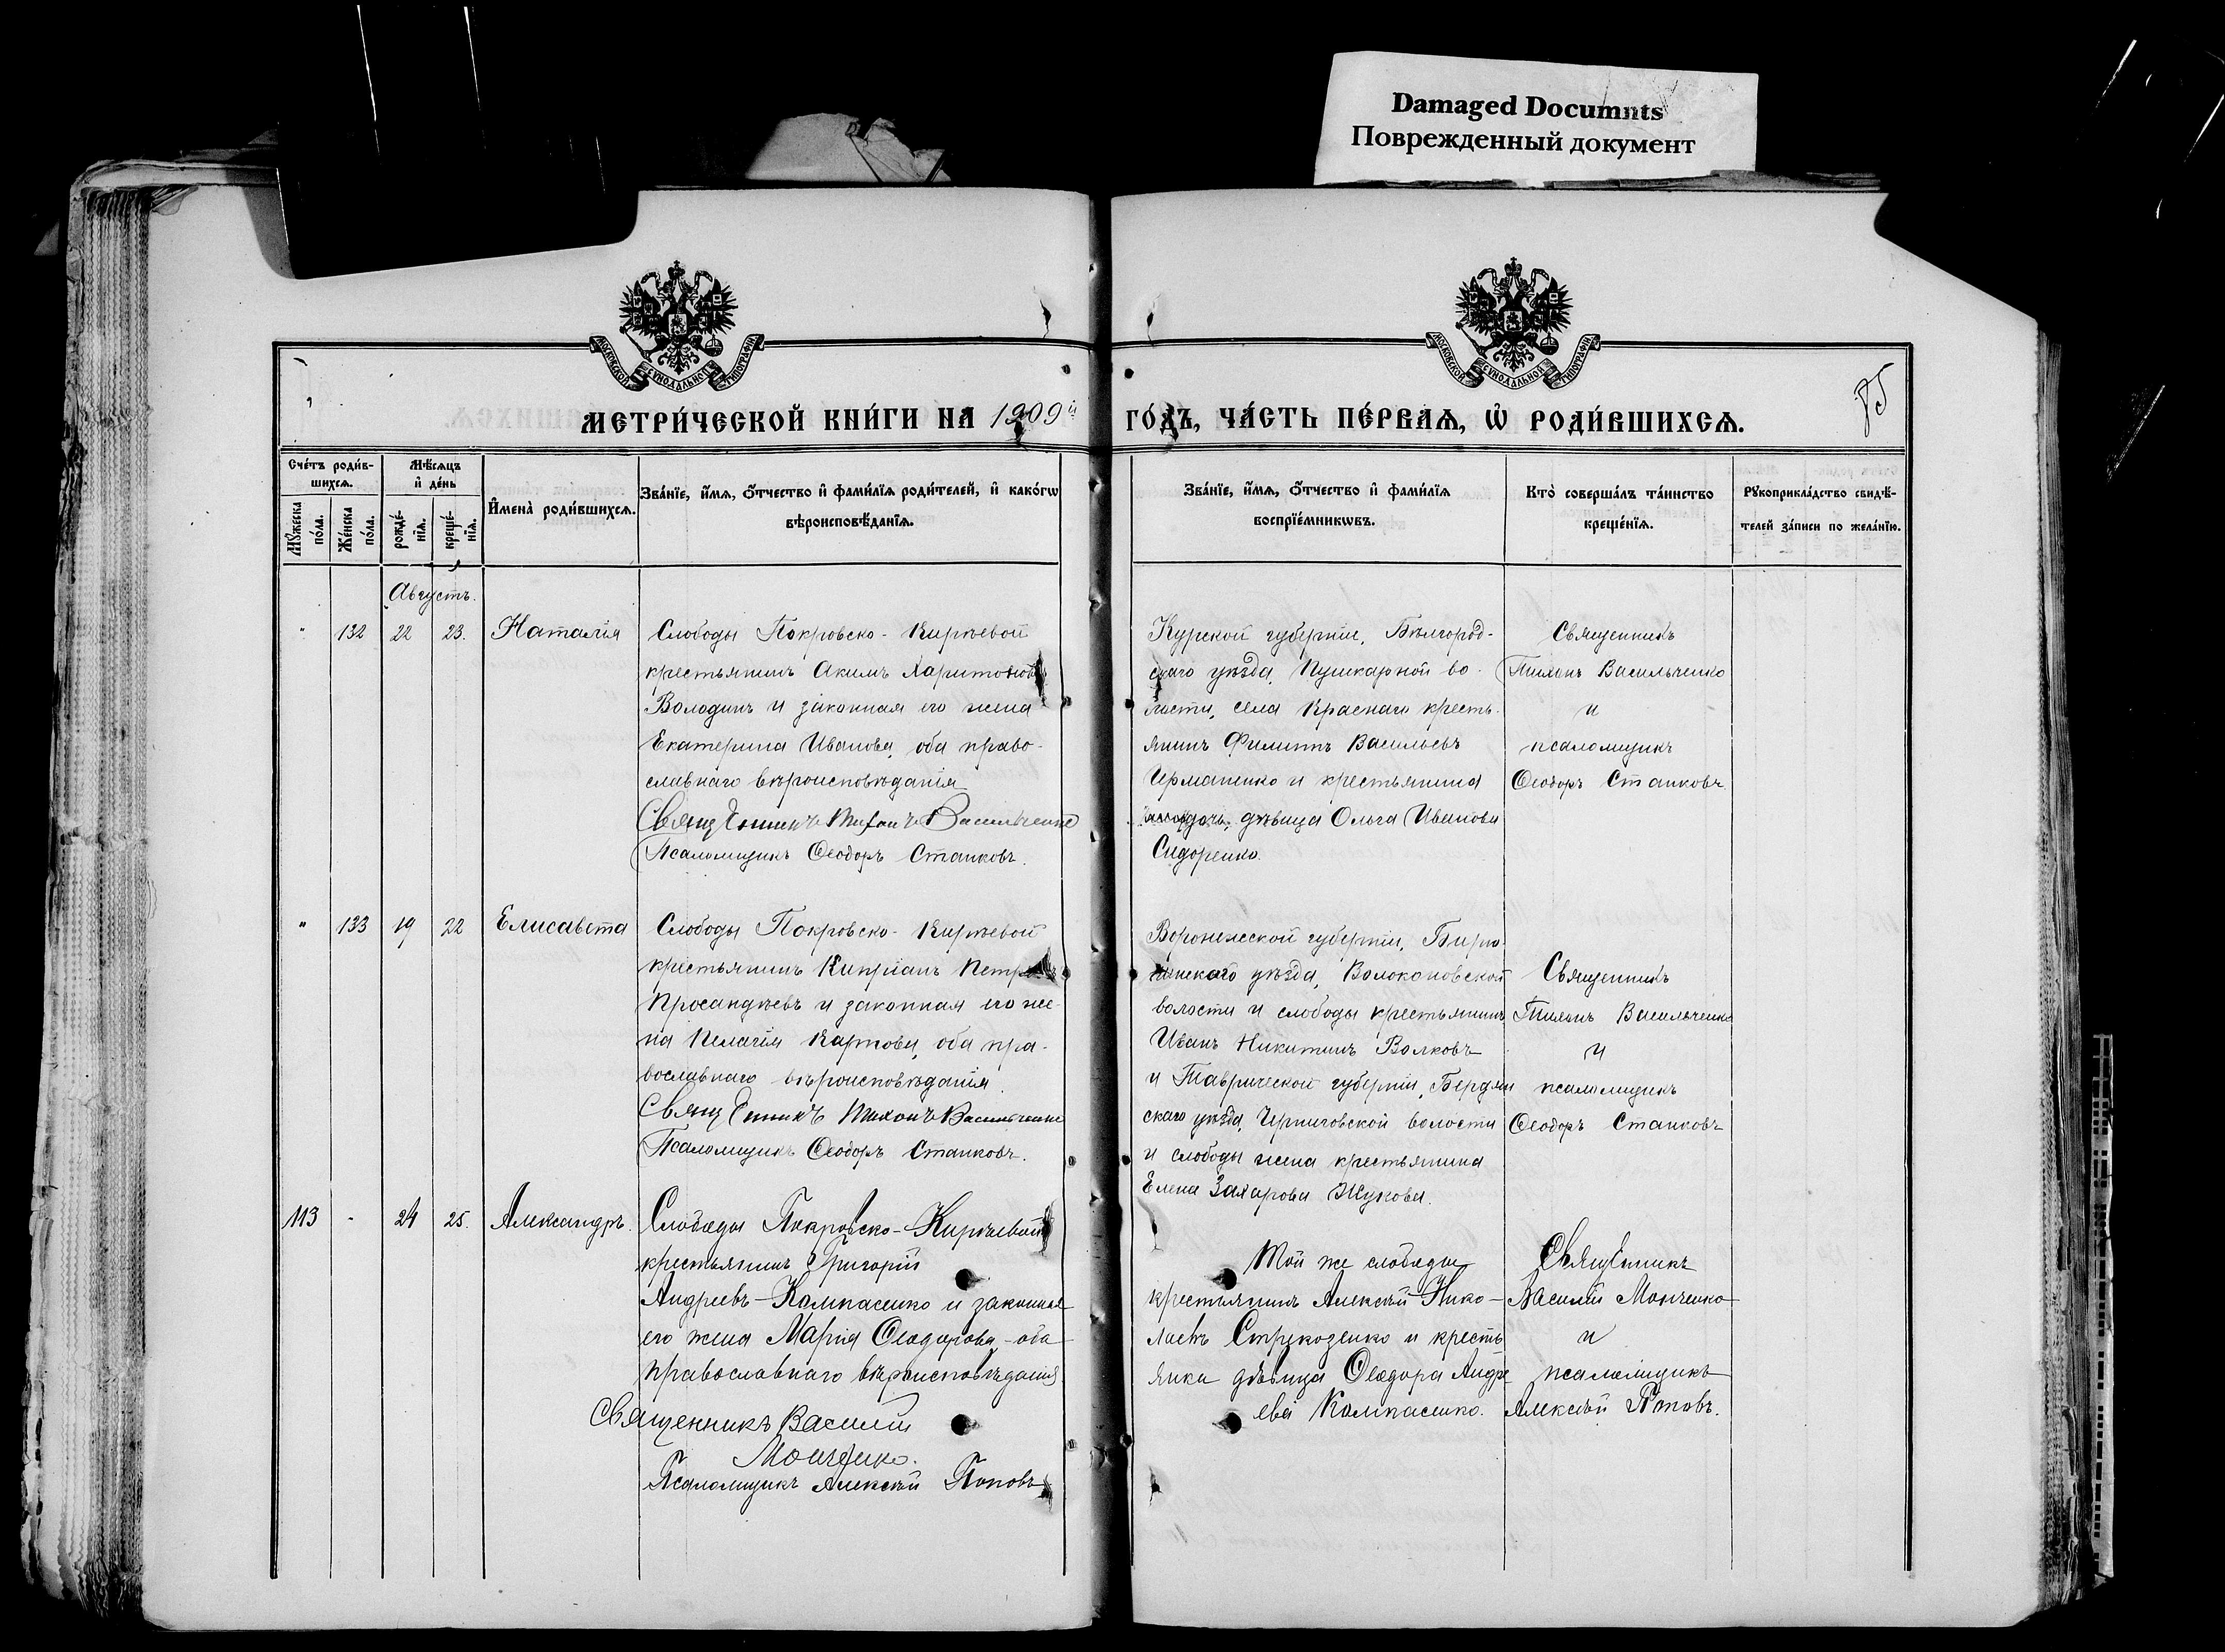 Damaged Documnts
Поврежденный документ
МОСКОВСКОЙ СУНОДАЛЬНОЙ ТИПОГРАФІИ
МОСКОВСКОЙ СУНОДАЛЬНОЙ ТИПОГРАФІИ
85
МЕТРИ́ЧЕСКОЙ КНИ́ГИ НА 1909й ГО́ДЪ, ЧА́СТЬ ПЕ́РВАѦ, Ѡ РОДИ́ВШИХСѦ.
Сче́тъ роди́в-
шихсѧ.
Мꙋ́жеска по́ла.
Же́нска по́ла.
Мѣ́сѧцъ
и҆ де́нь
рожде́-
нїѧ.
креще́-
нїѧ.
И҆мена̀ роди́вшихсѧ.
Зва́нїе, и҆́мѧ, ѻ҆́тчество и҆ фами́лїѧ роди́телей, и҆ како́гѡ
вѣроисповѣ́данїѧ.
Зва́нїе, и҆́мѧ, ѻ҆́тчество и҆ фами́лїѧ
воспрїе́мникѡвъ.
Кто̀ соверша́лъ та́инство
креще́нїѧ.
Рꙋкоприкла́дство свидѣ́-
телей за́писи по жела́нїю.
Августъ.
" 132 22 23. Наталія
Слободы Покровско-Киреевой
крестьянинъ Акимъ Харитоновъ
Володинъ и законная его жена
Екатерина Иванова, оба право-
славнаго вѣроисповѣданія
Священникъ Тихонъ Васильченко
Псаломщикъ Ѳеодоръ Станковъ.
Курской губерніи, Бѣлгород-
скаго уѣзда, Пушкарной во-
лости, села Краснаго кресть-
янинъ Филиппъ Васильевъ
Ермаченко и крестьянина
дочь, дѣвица Ольга Иванова
Сидоренко.
Священникъ
Тихонъ Васильченко
и
псаломщикъ
Ѳеодоръ Станковъ.
" 133 19 22 Елисавета
Слободы Покровско-Киреевой
крестьянинъ Кипріанъ
Просандѣевъ и законная его же-
на Пелагія Карпова, оба пра-
вославнаго вѣроисповѣданія.
Священникъ Тихонъ Васильченко
Псаломщикъ Ѳеодоръ Станковъ.
Воронежской губерніи, Бирю-
ченскаго уѣзда, Волоконовской
волости и слободы крестьянинъ
Иванъ Никитинъ Волковъ
и Таврической губерніи, Бердян
скаго уѣзда, Черниговской волости
и слободы жена крестьянина
Елена Захарова Жукова.
Священникъ
Тихонъ Васильченко
и
псаломщикъ
Ѳеодоръ Станковъ
113 - 24 25. Александръ.
Слободы Покровско-Киреевой
крестьянинъ Григорій
Андреевъ-Компасенко и законная
его жена Марія Ѳеодорова, оба
православнаго вѣроисповѣданія
Священникъ Василій
Монченко.
Псаломщикъ Алексѣй Поповъ
Той же слободы
крестьянинъ Алексѣй Нико-
лаевъ Стрекозенко и кресть
янка дѣвица Ѳеодора Андре
ева Компасенко.
Священникъ
Василій Монченко
и
псаломщикъ
Алексѣй Поповъ.